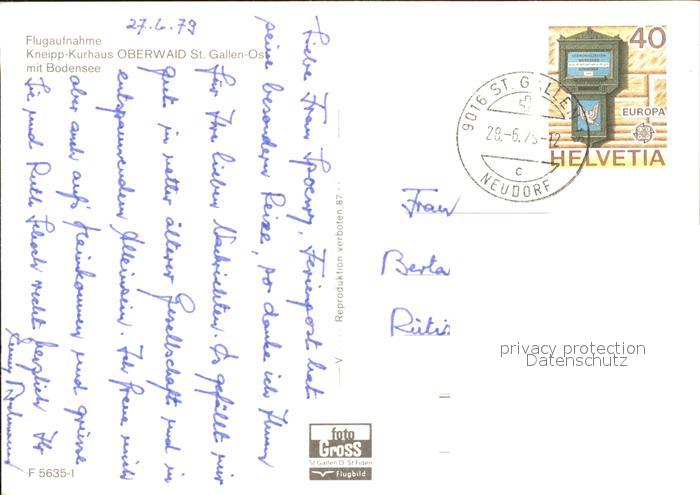 27.6.79
Flugaufnahme
Kneipp-Kurhaus OBERWAID St. Gallen-Ost
mit Bodensee
Liebe Frau Feriengost hat
seine besondern Reize, so danke ich Ihnen
für Ihre lieben Nachrichten. Es gefällt mir
gut in netter älterer Gesellschaft und in
entspannendem Alleinsein. Ich freue mich
aber auch aufs Heimkommen und grüsse
Sie und Ruth Schoch recht herzlich Ihr
V Reproduktion verboten 87
F 5635-1
foto
GROSS
St Gallen O. St Fiden
Flugbild
40
EUROPA
HELVETIA
9016 ST. GALLEN
28.-6.79-12
C
NEUDORF
Frau
Berta
Rüti
privacy protection
Datenschutz